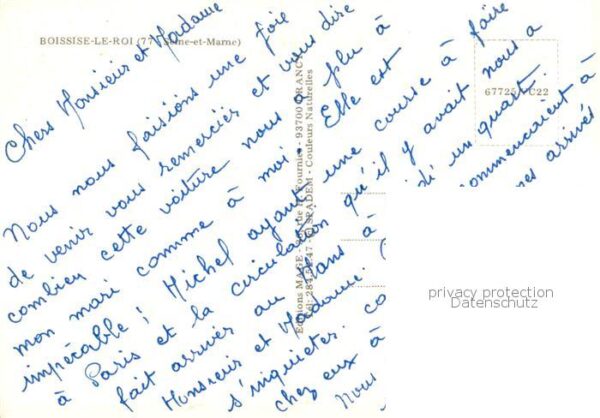 BOISSISE-LE-ROI (77 Seine-et-Marne)
Chers Monsieur et Madame
Nous nous faisions une joie
de venir vous remercier et vous dire
combien cette voiture nous a plu à
mon mari comme à moi. Elle est
impécable ! Michel ayant une course à faire
à Paris et la circulation qu'il y avait nous a
fait arrivés au Mans à di un quart
Monsieur et Madame commencaient à
s'inquieter. co mes arrivés
chez eux à
Nous
Editions MAGE - Fournier - 93700 DRANCY
SPADEM - Couleurs Naturelles
67725 C22
privacy protection
Datenschutz